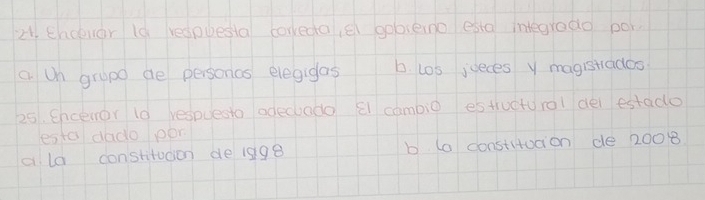 24. Encerrar la respuesta correcta, El gobierno esta integrado por.
a. Un grupo de personas elegidas b. Los jueces y magistrados.
25. Encerrar la respuesta adecuada El cambio estructural del estado
esta dado por
a. la constitucion de 1998 b la constitucion de 2008